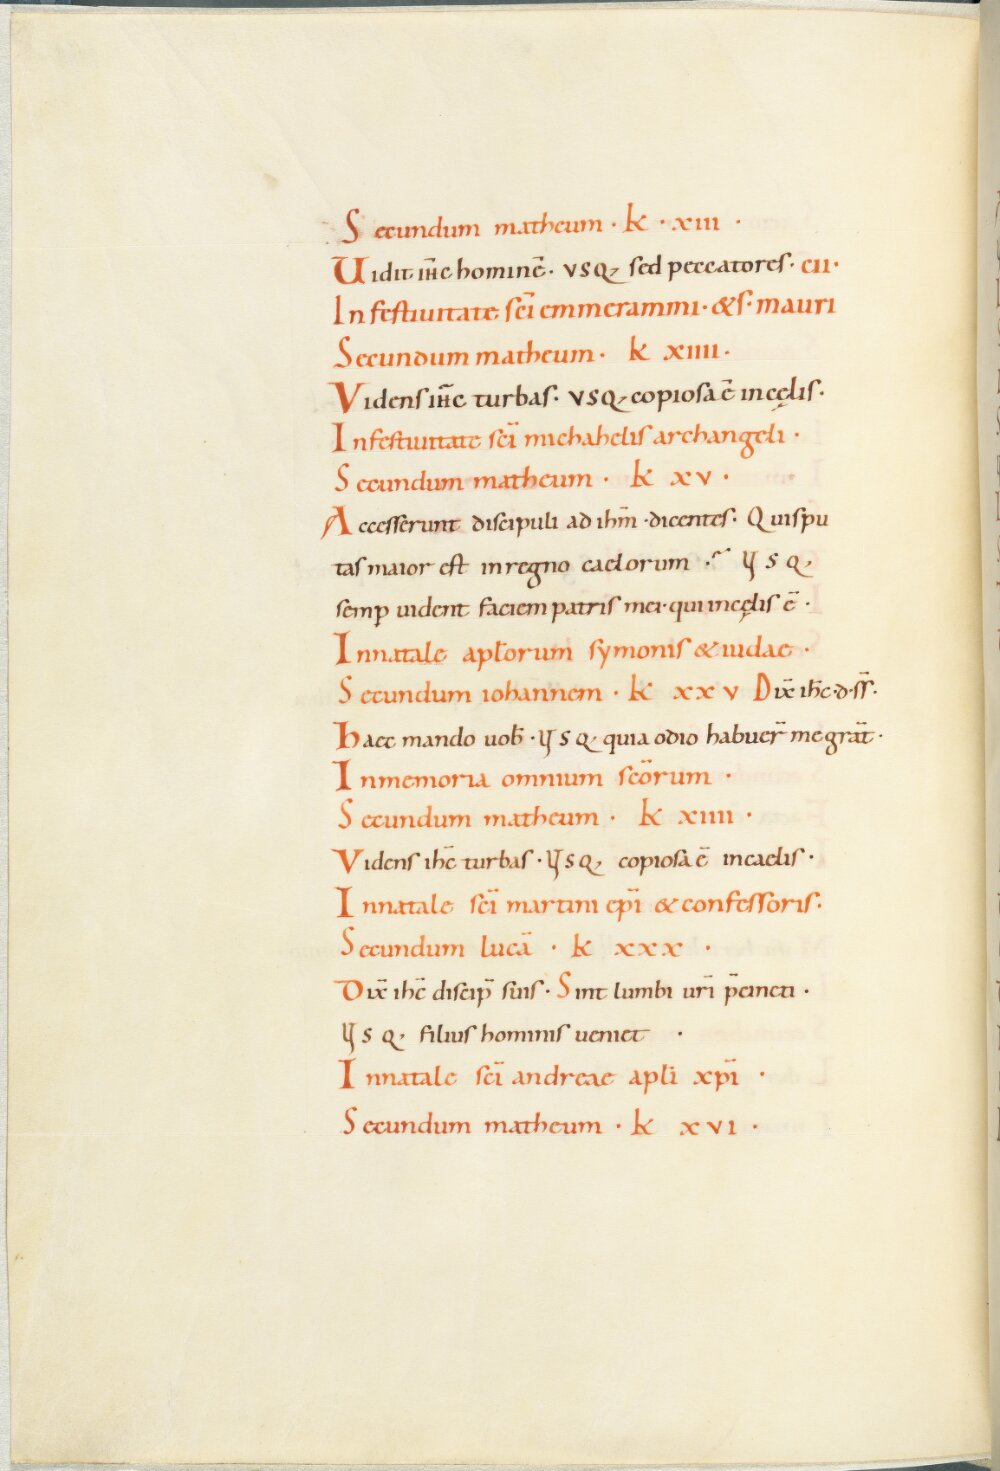 Secundum matheum · k · xiii ·
Uidit iħc hominē · vsq, sed peccatores · cii ·
In festiuitate sc̄i emmerammi · & s · mauri
Secundum matheum · k xiiii ·
Videns iħc turbas · vsq, copiosa ē in cęlis ·
In festiuitate sc̄i michahelis archangeli ·
Secundum matheum · k xv ·
Accesserunt discipuli ad ihm̄ · dicentes · Quis pu
tas maior est in regno caelorum · Usq,
semp uident faciem patris mei · qui in cęlis ē ·
In natale apl̄orum symonis & iudae ·
Secundum iohannem · k xxv Dix̄ ihc̄ · d · s̄s̄ ·
Haec mando uob̄ · Usq, quia odio habuer̄ me grat̄ ·
In memoria omnium sc̄orum ·
Secundum matheum · k xiiii ·
Videns ihc̄ turbas · Usq, copiosa ē in caelis ·
In natale sc̄i martini ep̄i & confessoris ·
Secundum lucā · k xxx ·
Dix̄ ihc̄ discip̄ suis · Sint lumbi ur̄i p̄cincti ·
Usq, filius hominis ueniet ·
In natale sc̄i andreae apl̄i xp̄i ·
Secundum matheum · k xvi ·